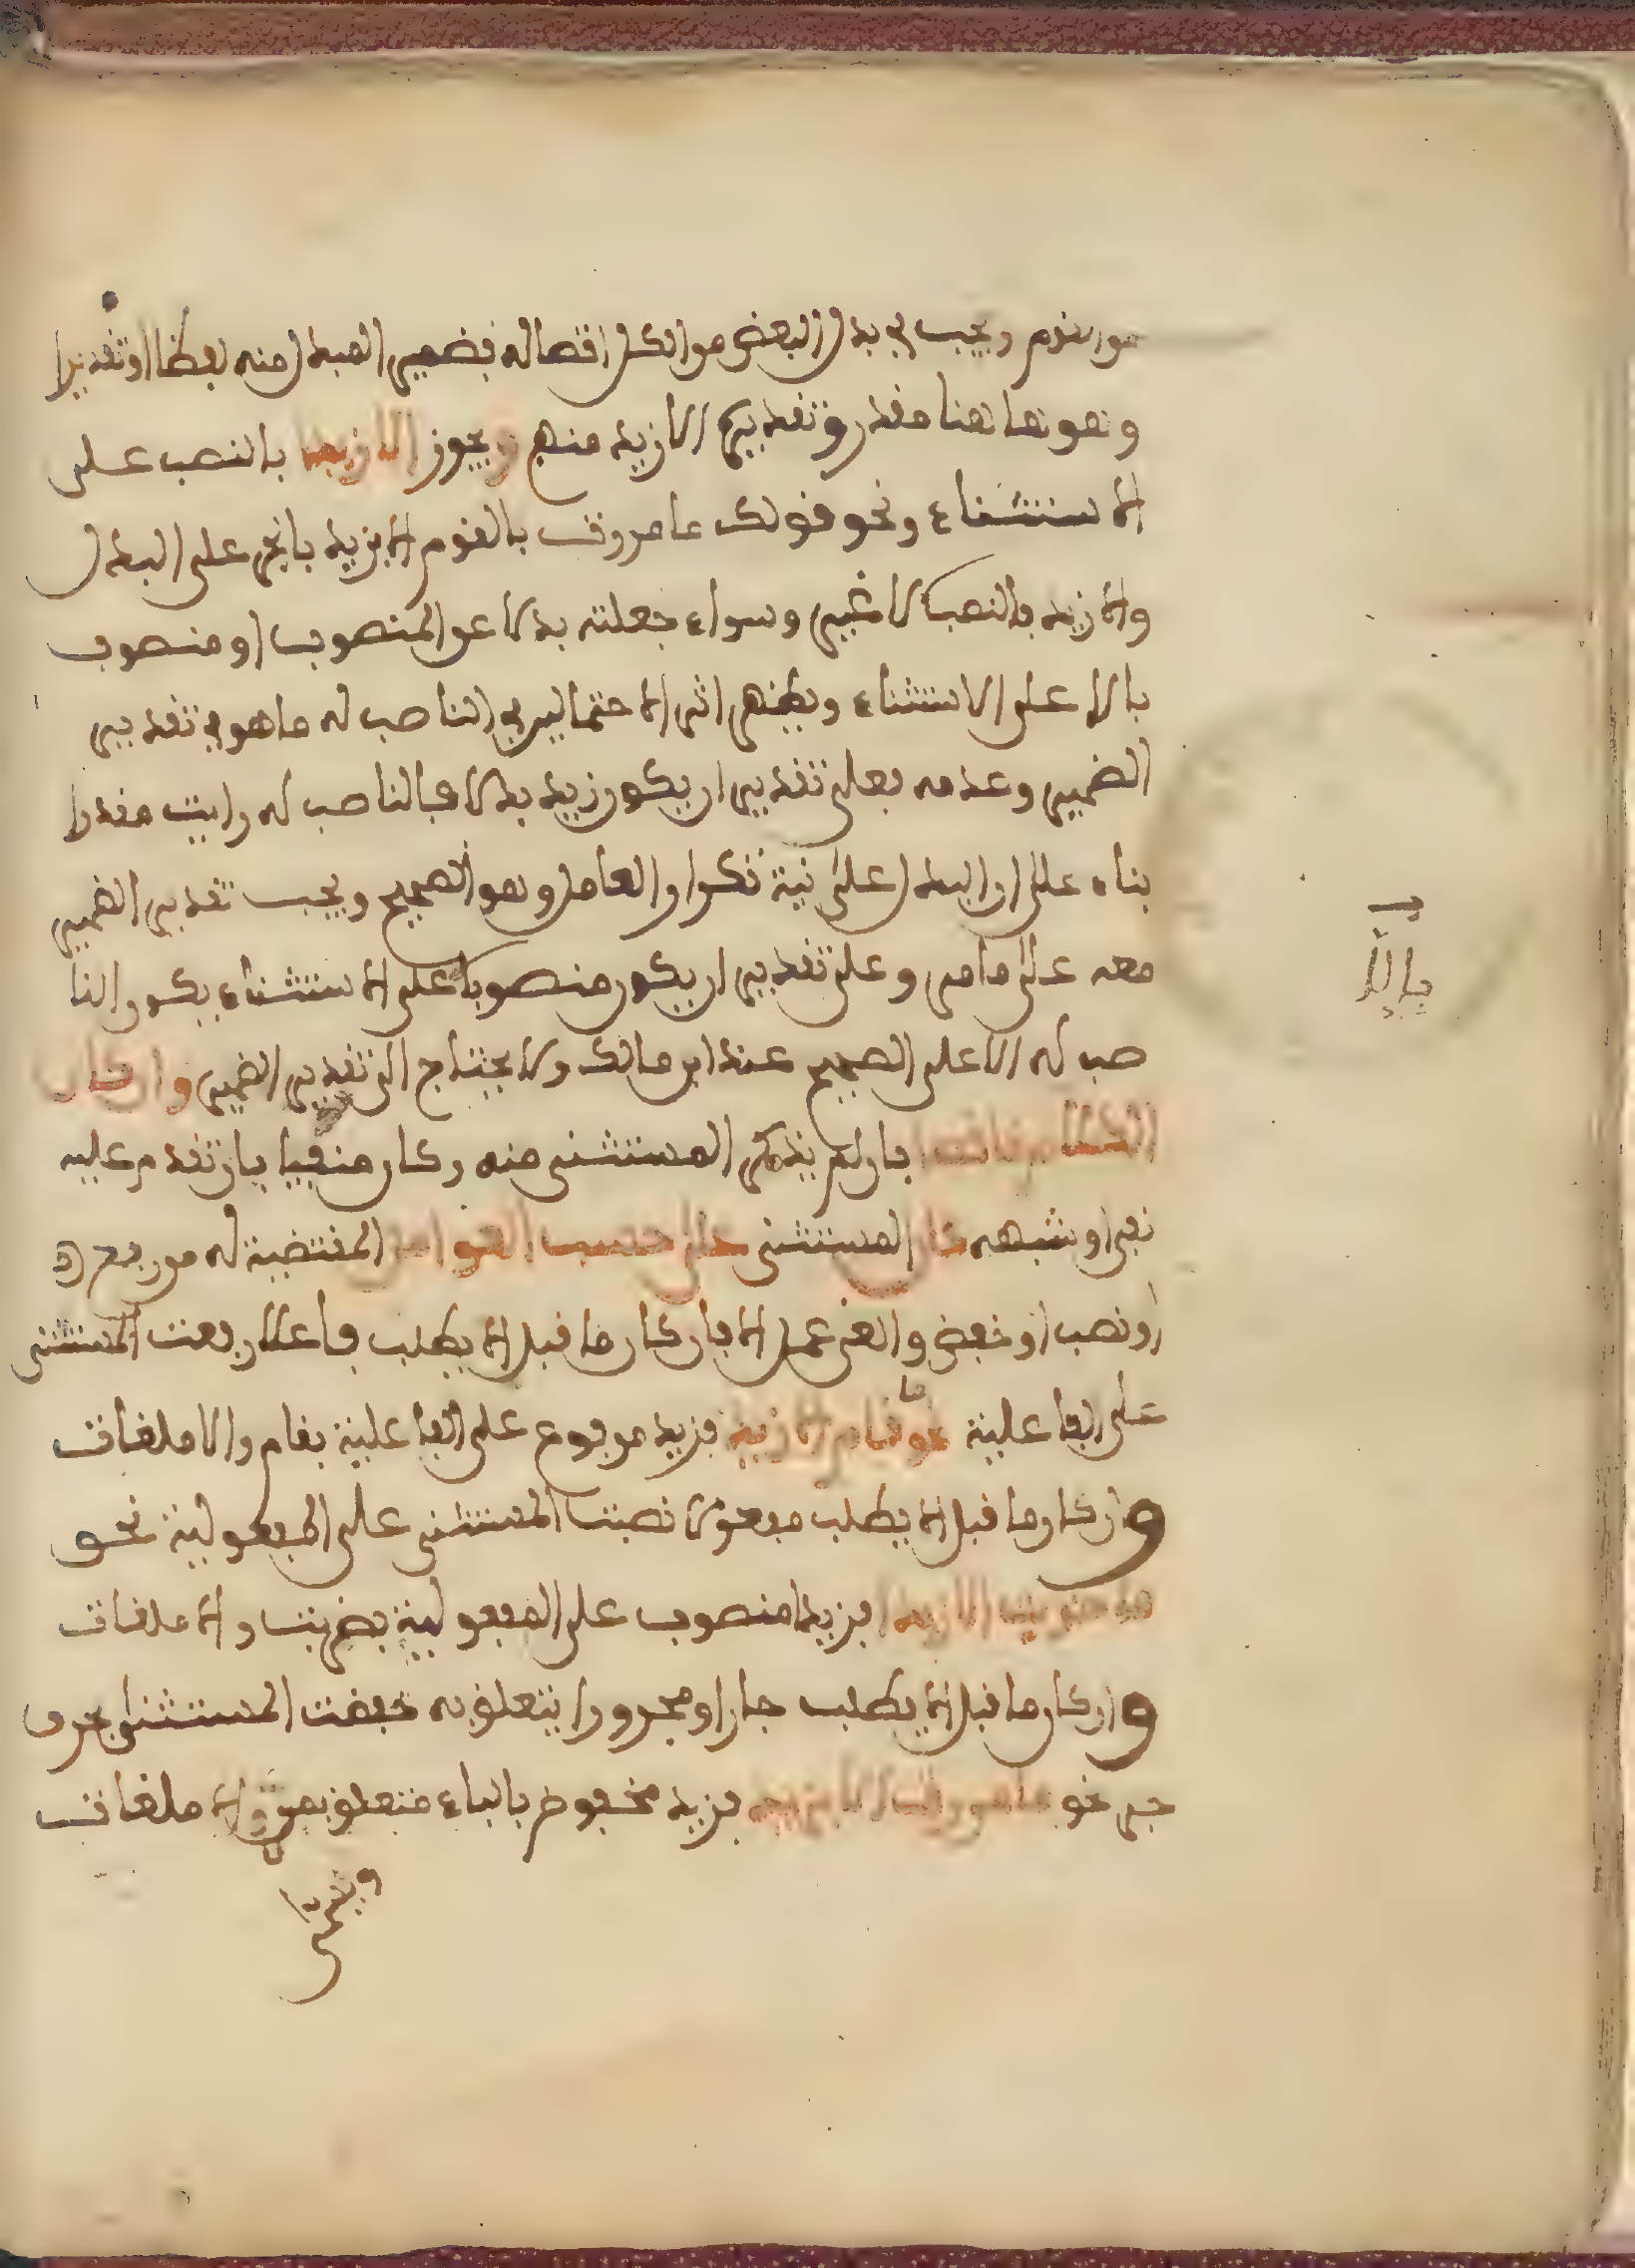 من القوم ويجب في بدل البعض من الكل اتصاله بضمير المبدل منه لفظا او تقديرا
وهو هاهنا مقدر وتقديره الا زيد منهم ويجوز الا زيدا بالنصب على
الاستثناء ونحو قولك ما مررت بالقوم الا بزيد بالجر على البدل
والا زيد بالنصب لا غير وسواء جعلته بدلا من المنصوب او منصوب
بالا على الاستثناء ويظهر اثر الاحتمالين في الناصب له ما هو في تقدير
الضمير وعدمه فعلى تقدير ان يكون زيد بدلا فالناصب له رايت مقدرا
بناء على ان البدل على نية تكرار العامل وهو الصحيح ويجب تقدير الضمير
معه على ما مر وعلى تقدير ان يكون منصوبا على الاستثناء يكون النا
صب له الا على الصحيح عند ابن مالك ولا يحتاج الى تقدير الضمير وان كان
الكلام ناقصا بان لم يذكر المستثنى منه وكان منفيا بان تقدم عليه
نفي او شبهه كان المستثنى على حسب العوامل المقتضية له من رفع
او نصب او خفض والغي عمل الا فان كان ما قبل الا يطلب فاعلا رفعت المستثنى
على الفاعلية نحو ما قام الا زيد فزيد مرفوع على الفاعلية بقام والا ملغاة
وان كان ما قبل الا يطلب مفعولا نصبت المستثنى على المفعولية نحو
ما ضربت الا زيدا فزيدا منصوب على المفعولية بضربت والا ملغاة
وان كان ما قبل الا يطلب جارا ومجرورا يتعلق به خفضت المستثنى بحرف
جر نحو ما مررت الا بزيد فزيد مخفوض بالباء متعلق بمررت والا ملغات
بالا